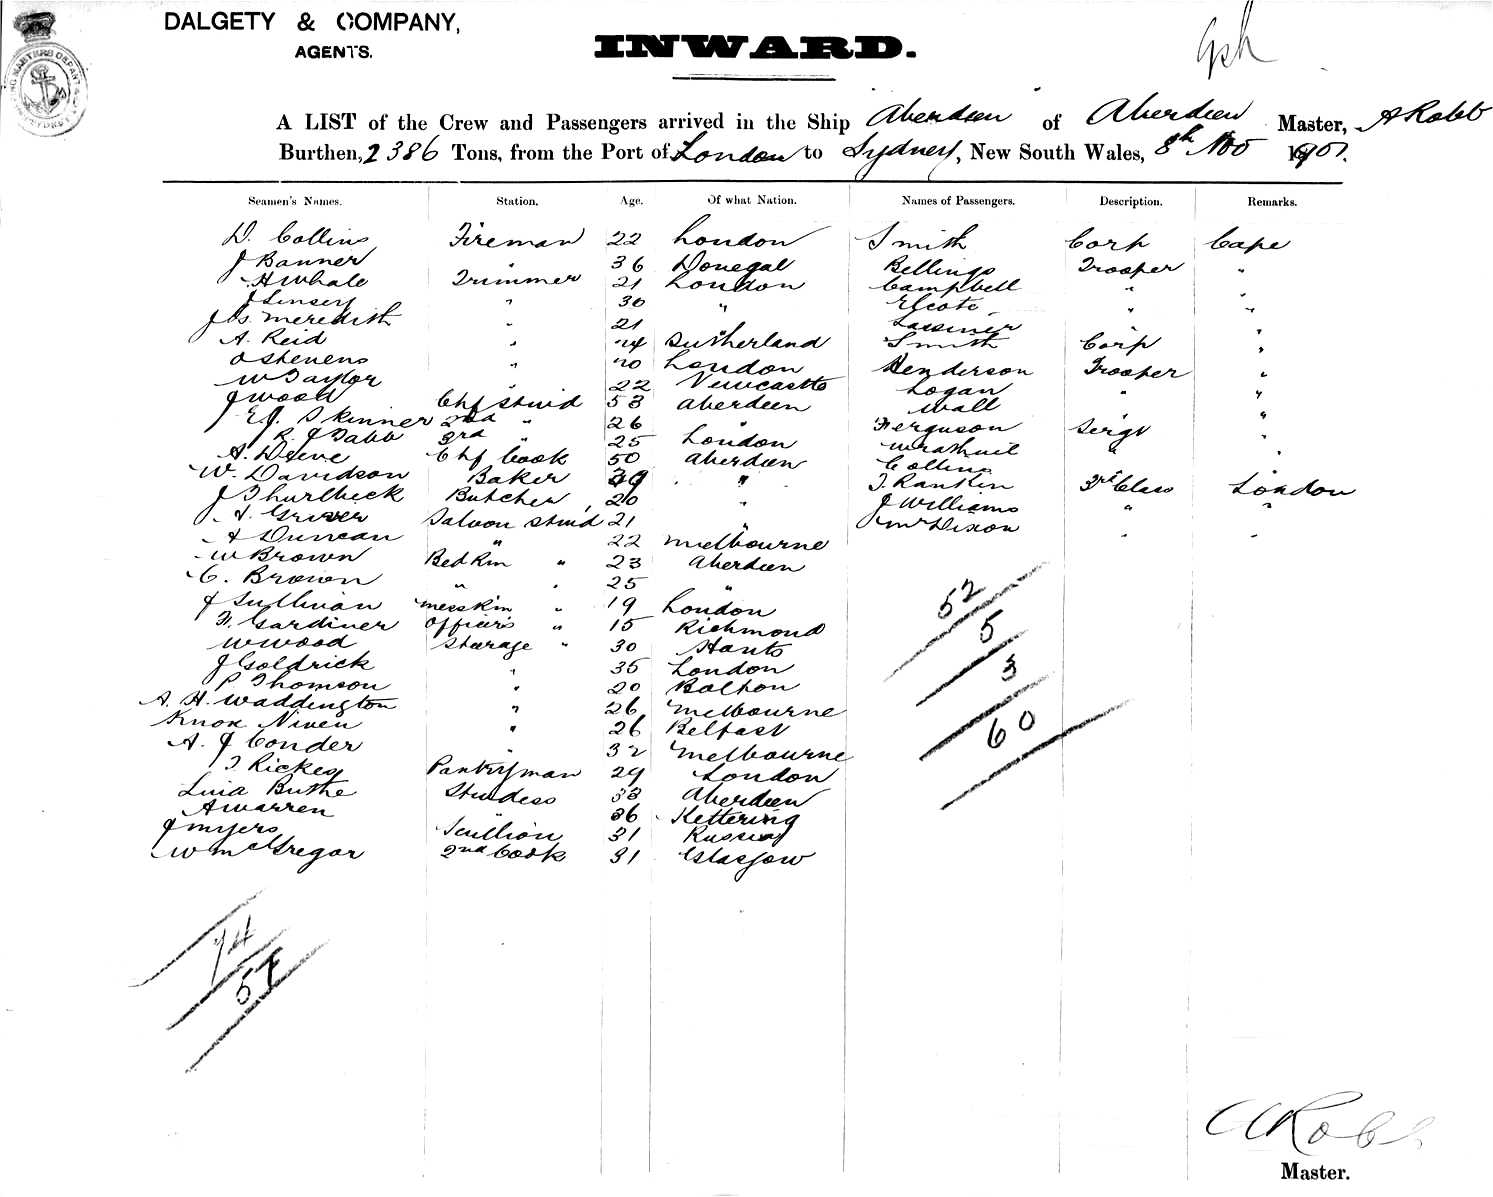 DALGETY & COMPANY,
AGENTS.
INWARD.
A LIST of the Crew and Passengers arrived in the Ship Aberdeen of Aberdeen Master, A Robb
Burthen, 2386 Tons, from the Port of London to Sydney, New South Wales, 8th Nov 1901.
Seamen's Names. Station. Age. Of what Nation. Names of Passengers. Description. Remarks.
D. Collins Fireman 22 London Smith Corp Cape
J Banner " 36 Donegal Bellings Trooper "
H Whale Trimmer 21 London Campbell " "
J Linsey " 30 " Elcote " "
J G. Meredith " 21 " Lassiner " "
A. Reid " 24 Sutherland Smith Corp "
O Stevens " 20 London Henderson Trooper "
W Taylor " 22 Newcastle Logan " "
J Wood Chf Stwd 53 Aberdeen Wall " "
E. J. Skinner 2nd " 26 " Ferguson Sergt "
R. J Tabb 3rd " 25 London " "
A. Deeve Chf Cook 50 Aberdeen Collins
W. Davidson Baker 39 " T. Rankin 3rd Class London
J Thurlbeck Butcher 20 " J Williams " "
Saloon Stwd 21 " Mr Dixon " "
A Duncan " 22 Melbourne
W Brown Bed Rm " 23 Aberdeen
C. Brown " " 25 "
J Sullivan Messrm " 19 London
F. Gardiner Officers " 15 Richmond
W Wood Steerage " 30 Hants
J Goldrick " 35 London
P Thomson " 20 Bolton
A. H. Waddington " 26 Melbourne
Knox Niven " 26 Belfast
A. J Conder " 32 Melbourne
T Rickes Pantryman 29 London
Stwdess 33 Aberdeen
A Warren 36 Kettering
J Myers Scullion 31 Russia
W McGregor 2nd Cook 31 Glasgow
52
5
3
60
74
Master.